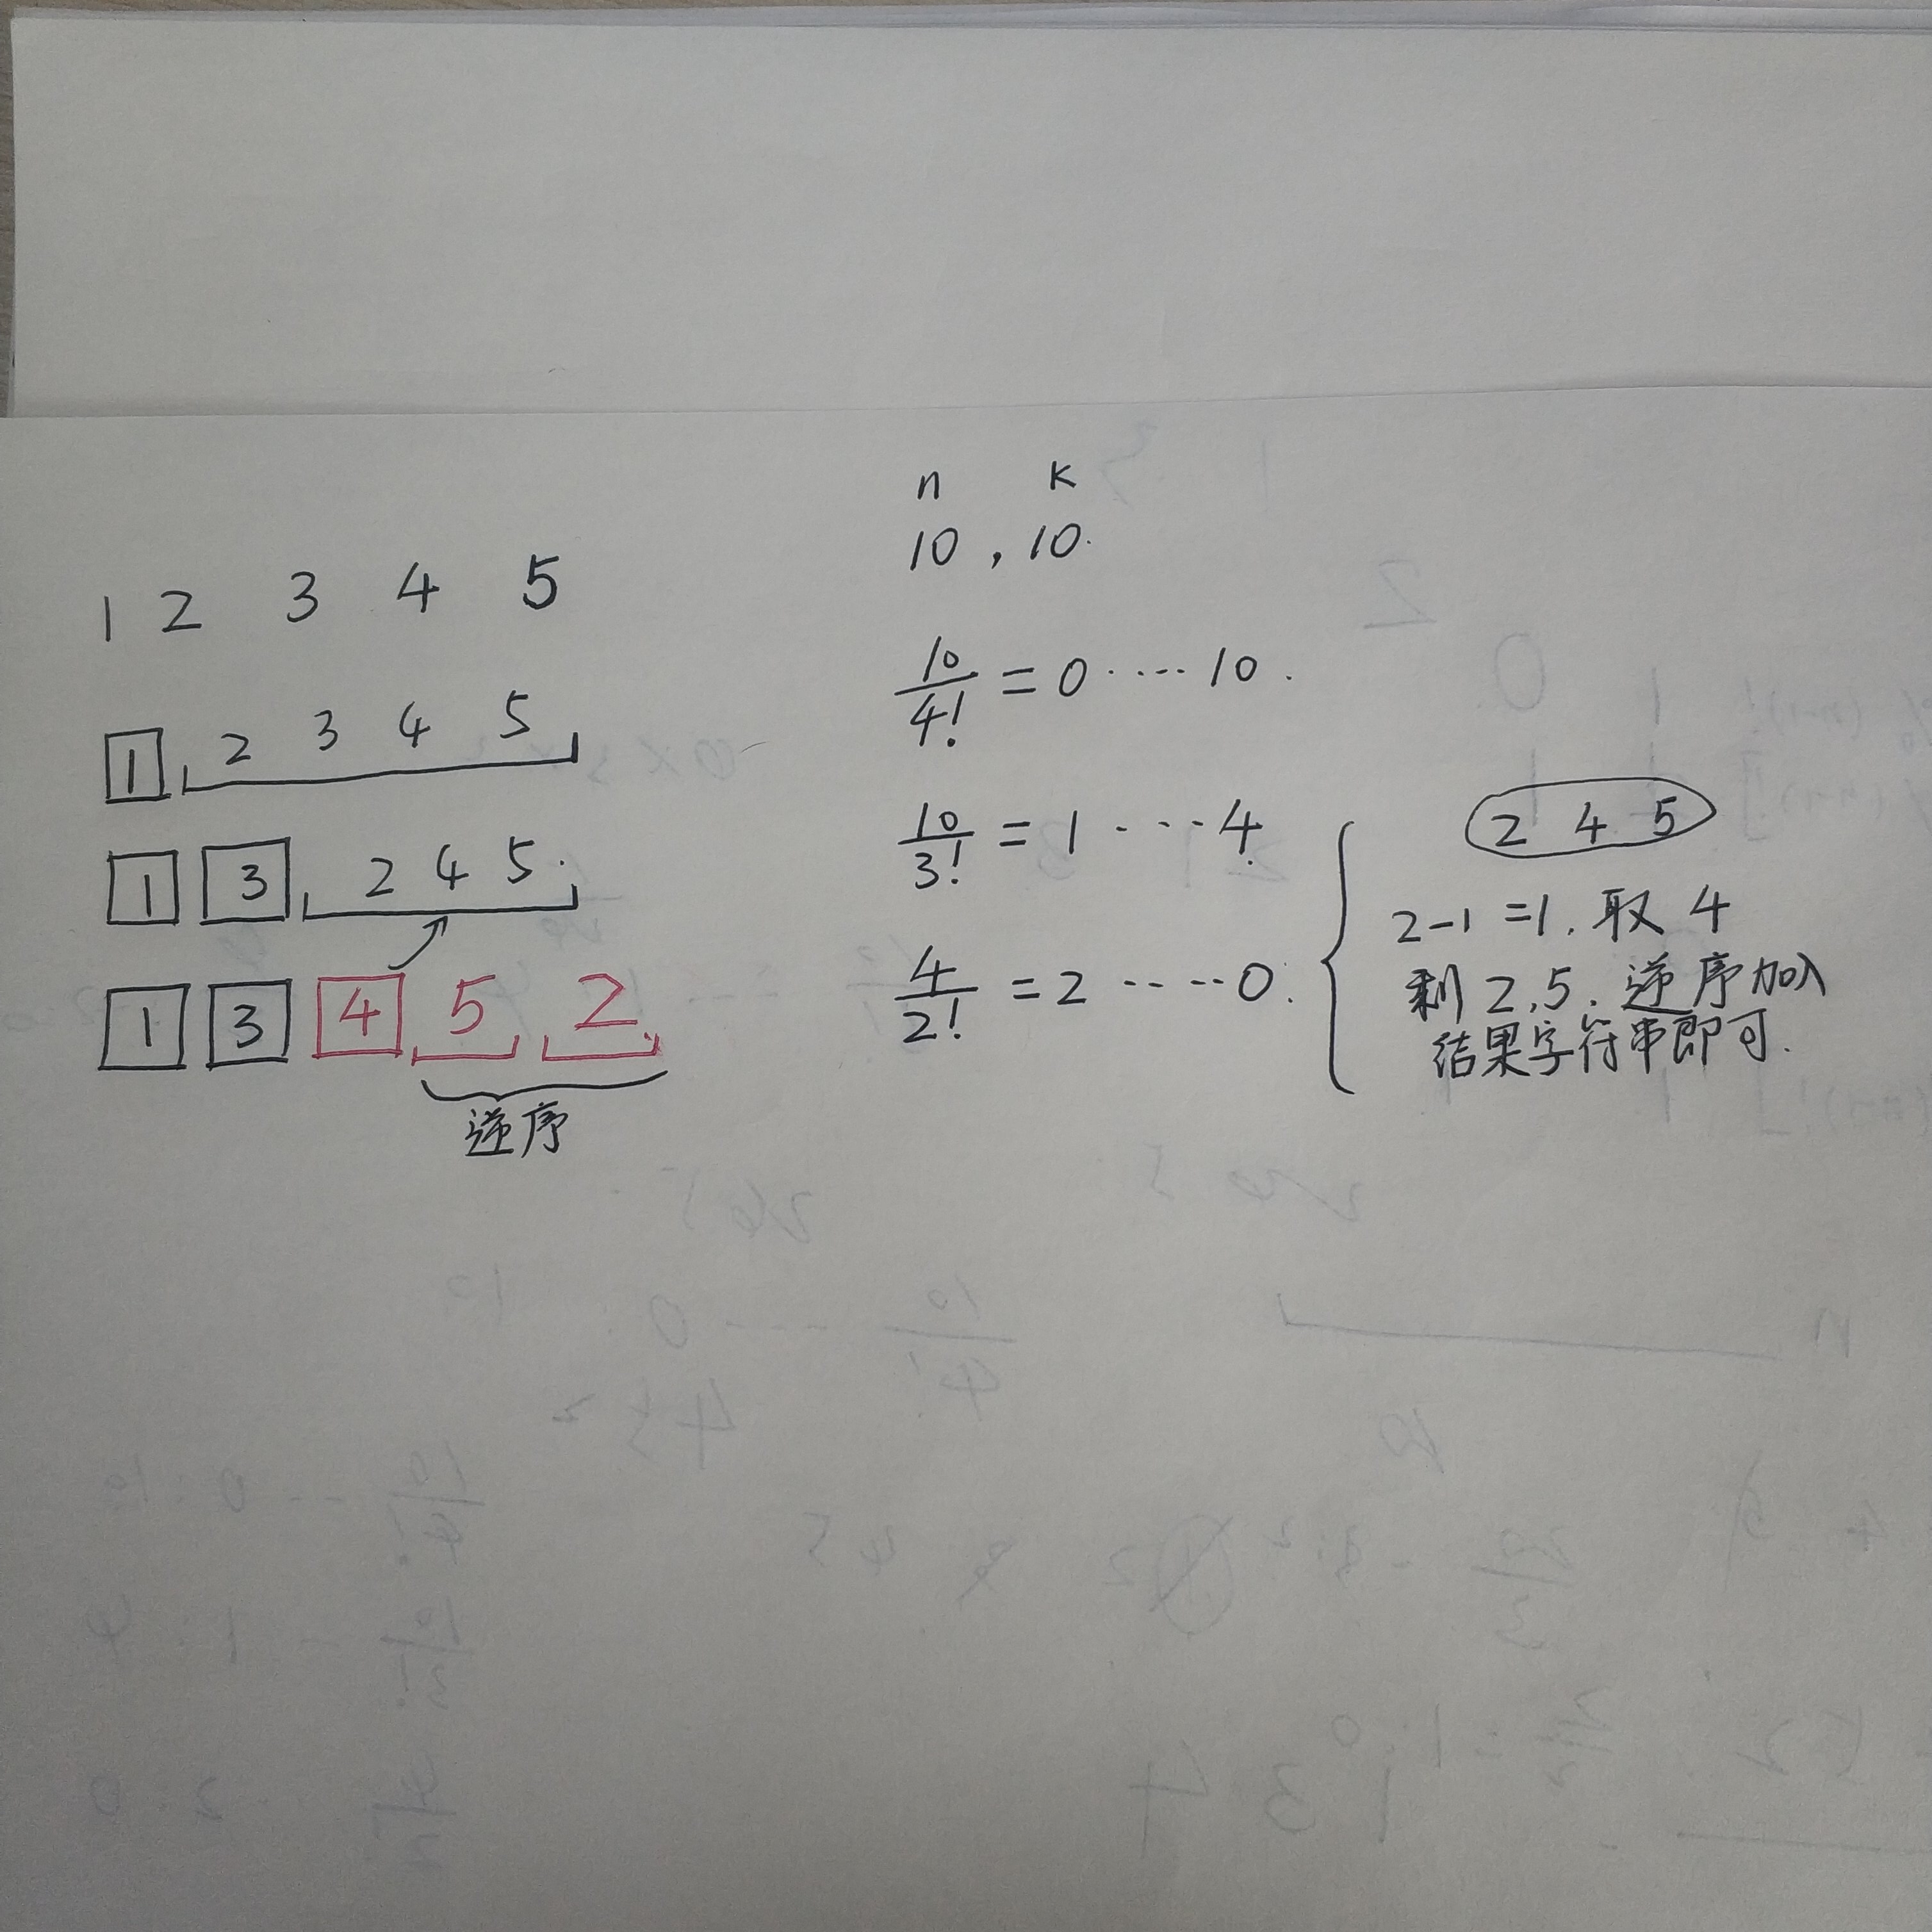 n k
10 , 10.
1 2 3 4 5
1 2 3 4 5
1 3 2 4 5.
1 3 4 5 2
逆序
10/4! = 0 ···· 10.
10/3! = 1 ···· 4.
4/2! = 2 ···· 0.
2 4 5
2-1 =1. 取 4
剩 2,5. 逆序加入
结果字符串即可.